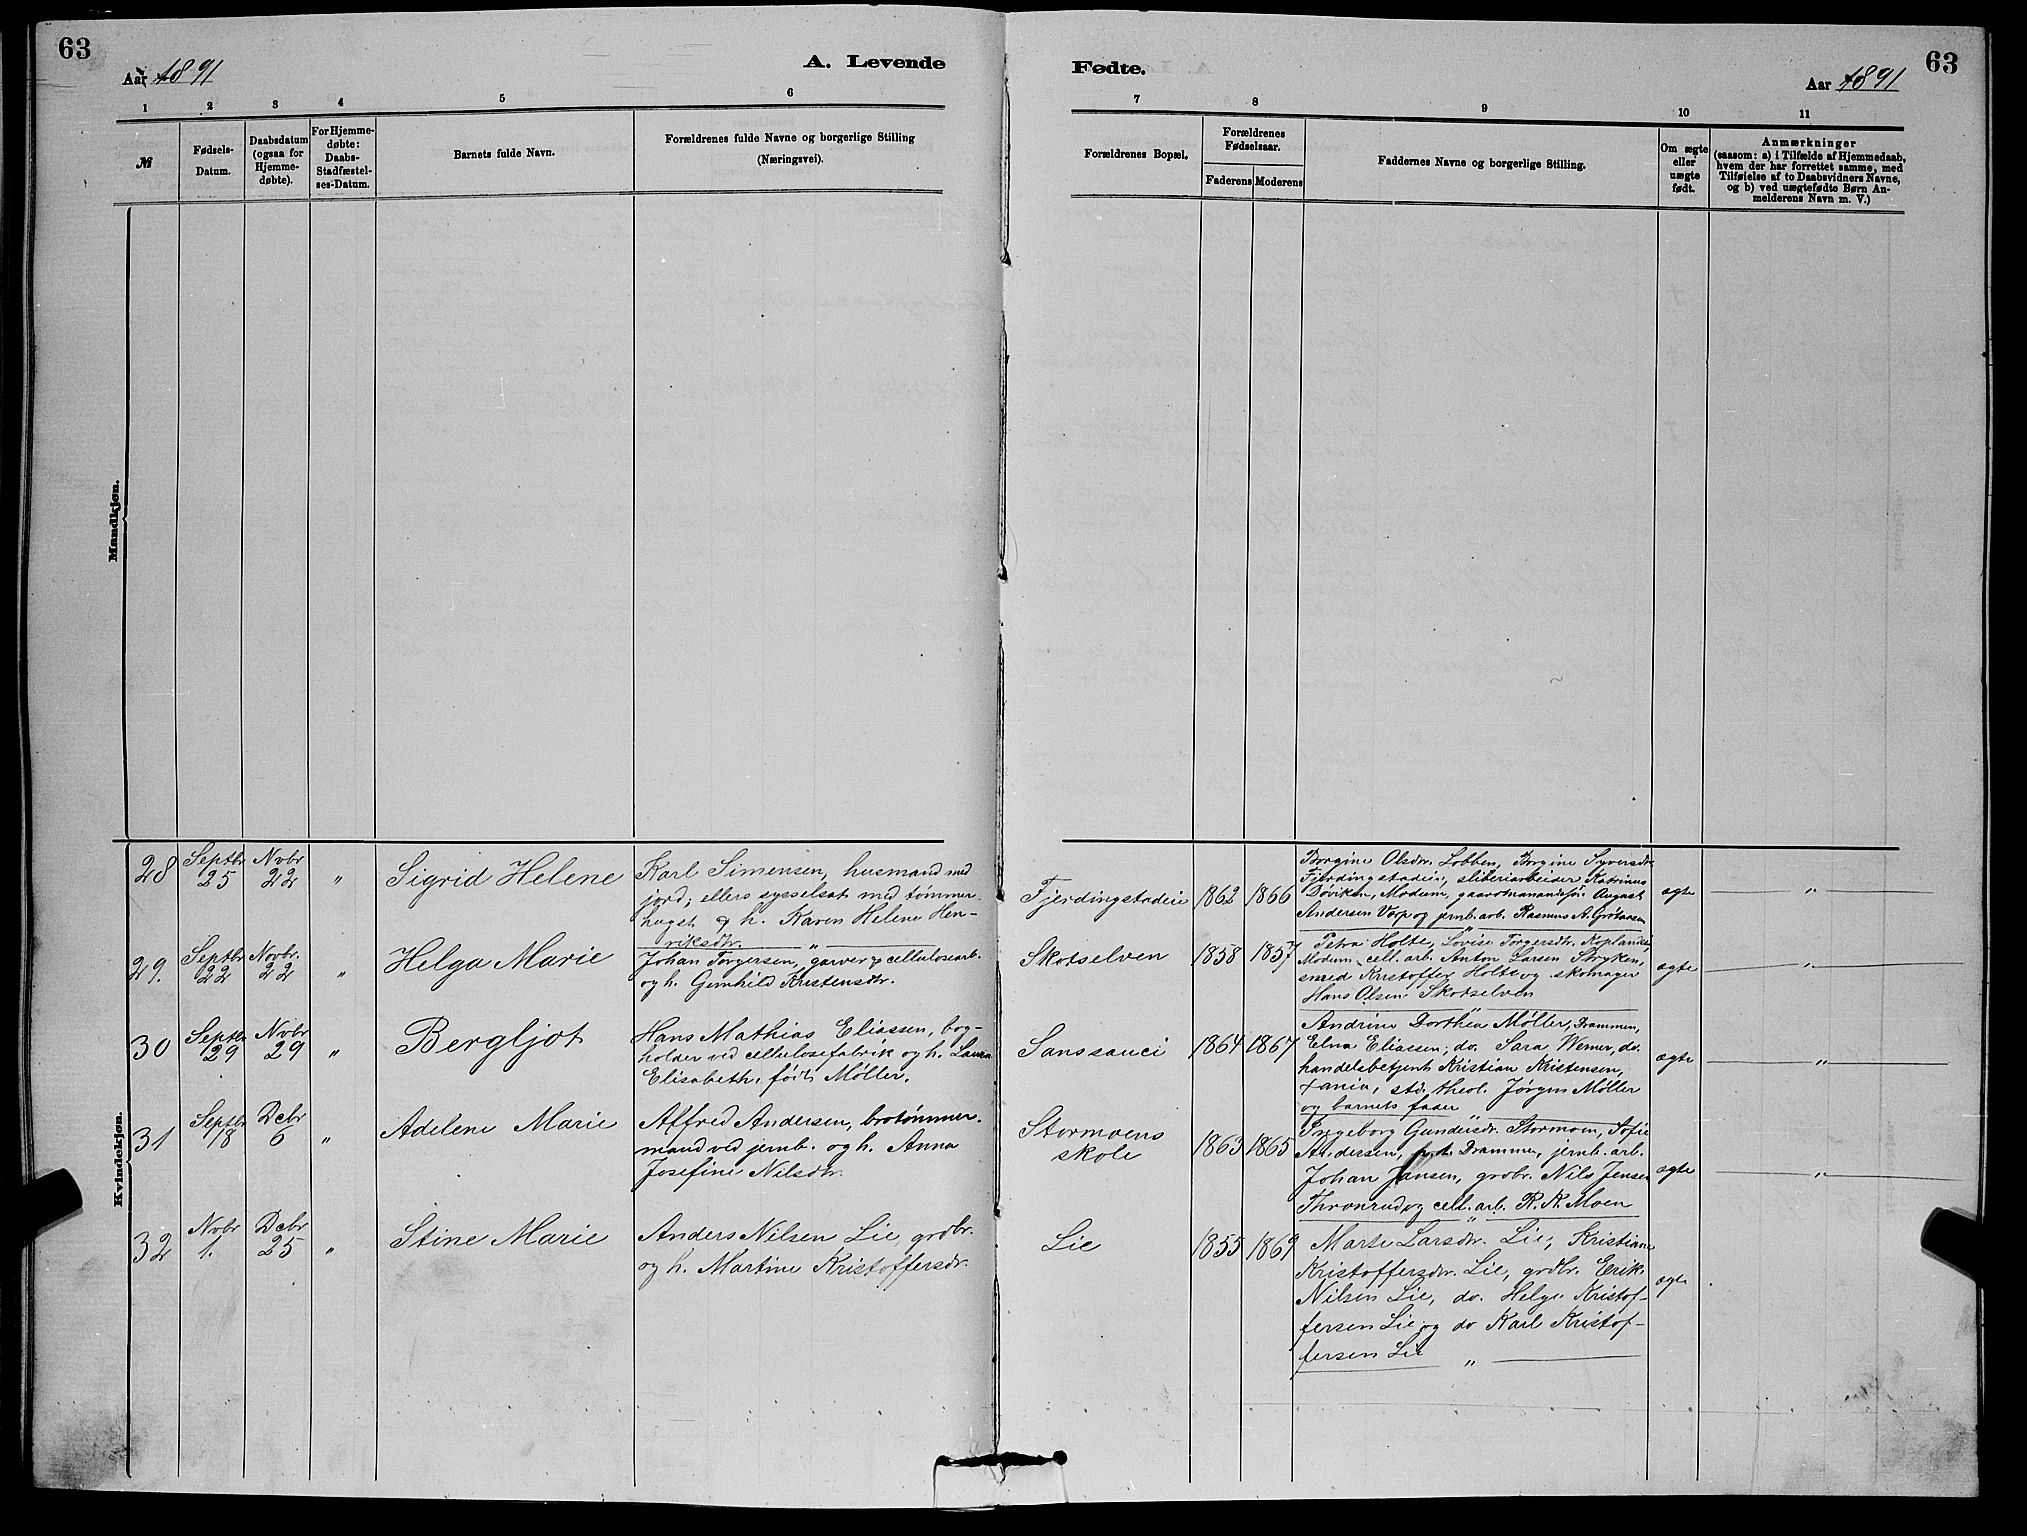 63
Aar 1891
A. Levende
Fødte.
Aar 1891
63
1 2 3 4 5 6 7 8 9 10 11
№
Fødsels-
Datum.
Daabsdatum
(ogsaa for
Hjemme-
døbte).
For Hjemme-
døbte:
Daabs-
Stadfæstel-
ses-Datum.
Barnets fulde Navn.
Forældrenes fulde Navne og borgerlige Stilling
(Næringsvei).
Forældrenes Bopæl.
Forældrenes
Fødselsaar.
Faderens Moderens
Faddernes Navne og borgerlige Stilling.
Om ægte
eller
uægte
født.
Anmærkninger
(saasom: a) i Tilfælde af Hjemmedaab,
hvem der har forrettet samme, med
Tilføielse af to Daabsvidners Navne,
og b) ved uægtefødte Børn An-
melderens Navn m. V.)
Mandkjøn.
Kvindekjøn.
28
Septbr
25
Novbr
22
"
Sigrid Helene
Karl Simensen, husmand med
jord; ellers sysselsat med tømmer-
hugst & h. Karen Helene Hen-
riksdtr. "
Fjerdingstadeie
1862
1866
Borgine Olsdtr. Lobben, Borgine Syversdtr.
Fjerdingstadeie, sliberiarbeider Katrinus
Døviken, Modum, gaardmandssøn August
Andersen Vap og jernb. arb. Rasmus A. Grötaasen
"
ægte
"
29.
Septbr
22
Novbr.
22
"
Helga Marie
Johan Torgersen, garver & cellulosearb.
og h. Gunhild Kristensdtr.
Skotselven
1858
1857
Petra Holte, Lovise Torgersdtr. Kopland,
Modum, cell. arb. Anton Larsen Stryken,
smed Kristoffer Holte og skomager
Hans Olsen Skotselven
"
ægte
"
30
Septbr
29
Novbr
29
"
Bergljot
Hans Mathias Eliassen, bog-
holder ved cellulosefabrik og h. Laura
Elisabeth, født Møller.
Sanssouci
1864
1867
Andrine Dorthea Møller, Drammen,
Elna Eliassen, do. Sara Werner, do.
handelsbetjent Kristian Kristensen,
Xania, std. theol. Jørgen Møller
og barnets fader
"
ægte
"
31
Septbr
18
Decbr
6
"
Adelene Marie
Alfred Andersen, brotømmer-
mand ved jernb. og h. Anna
Josefine Nilsdtr.
Stormoens
skole
1863
1865
Ingeborg Gundersdr. Stormoen, Sofie
Andersen, Drammen, jernb. arb.
Johan Jansen, grdbr. Nils Jensen
Thronrud og cell. arb. R. K. Moen
"
ægte
"
32
Novbr
1.
Decbr
25
"
Stine Marie
Anders Nilsen Lie, grdbr.
og h. Martine Kristoffersdr.
Lie
1855
1869
Marte Larsdtr. Lie, Kristiane
Kristoffersdtr. Lie, grdbr. Erik
Nilsen Lie, do. Helge Kristof-
fersen Lie og do Karl Kristof-
fersen Lie
"
ægte